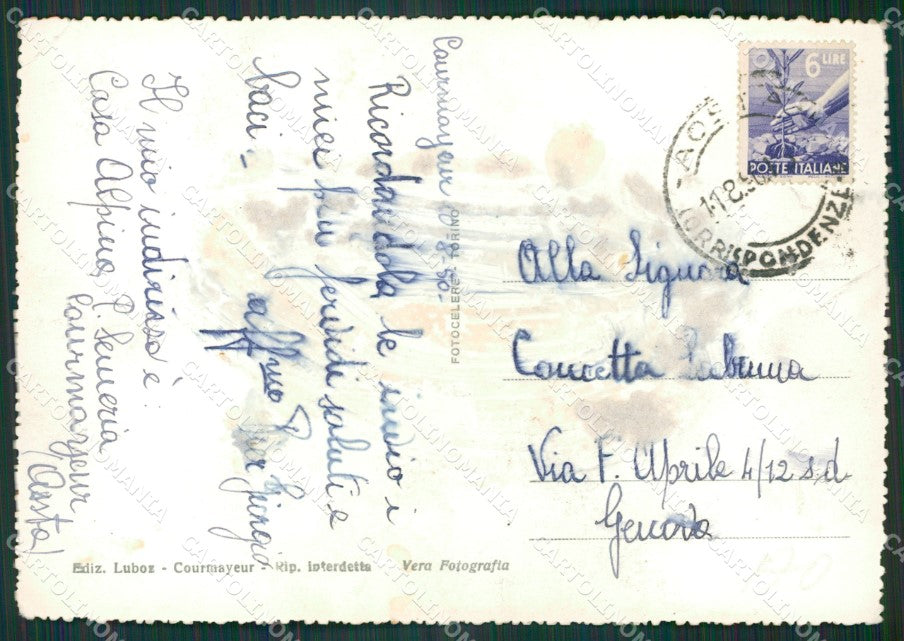 Courmayeur 10-8-50
Ricordandola le invio i
miei più fervidi saluti e
baci -
aff.mo Pier Giorgio
Il mio indirizzo è:
Casa Alpina P. Semeria
Courmayeur
(Aosta)
6 LIRE
POSTE ITALIANE
AOSTA
11.8.50
CORRISPONDENZE
Alla Signora
Concetta
Via F. Aprile 4/12 s.d.
Genova
FOTOCELERE TORINO
Ediz. Luboz - Courmayeur - Rip. interdetta Vera Fotografia
CARTOLINOMANIA